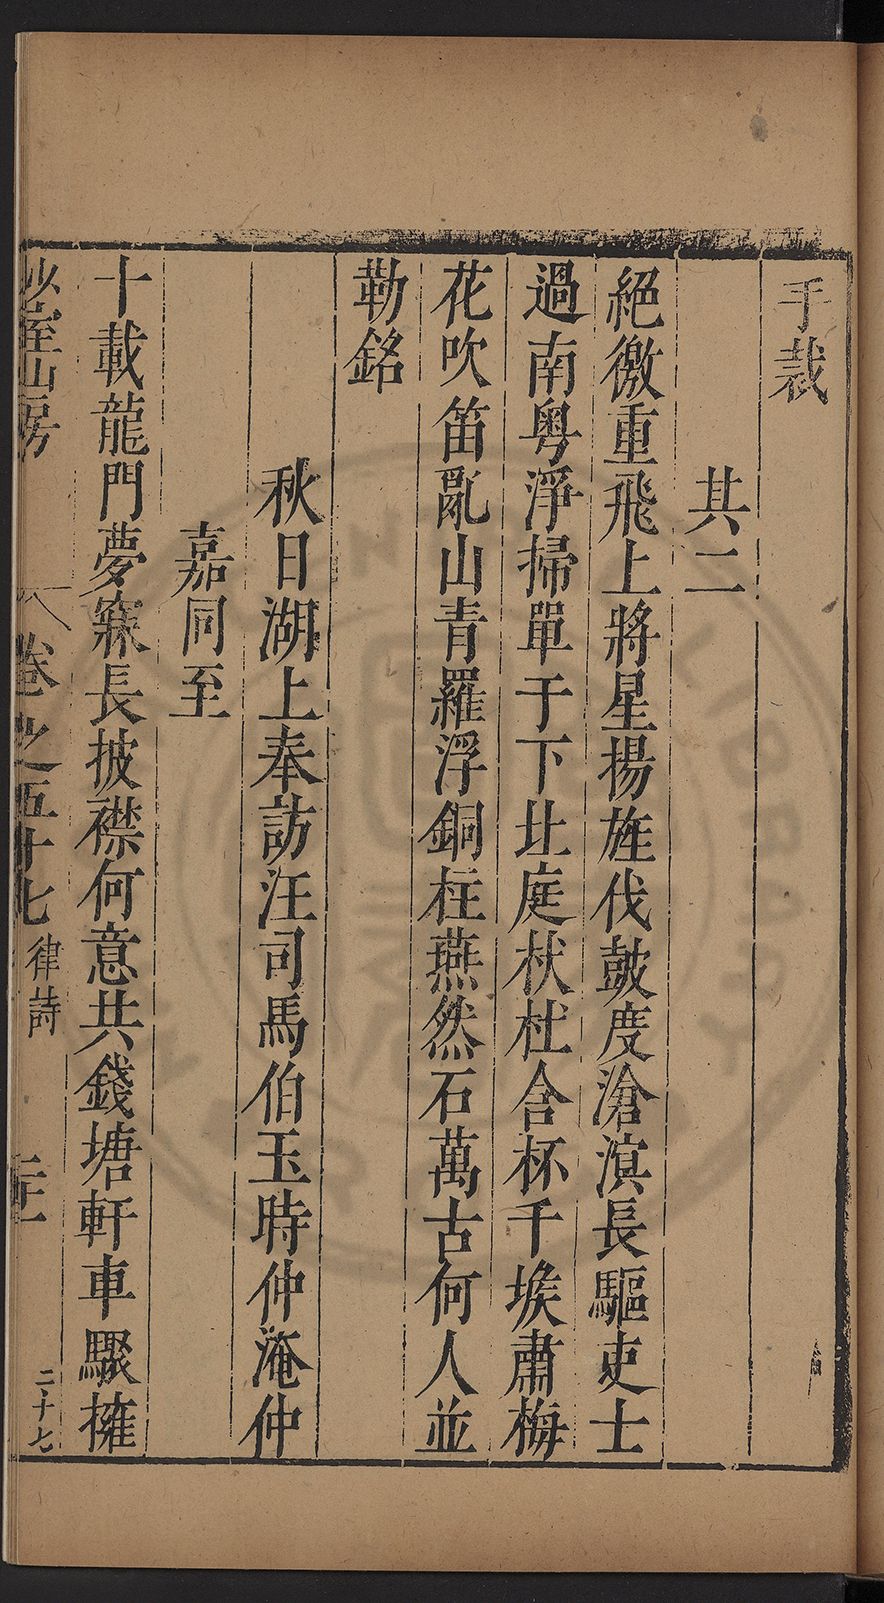 手裁
其二
絕徼重飛上將星揚旌伐鼓度滄溟長驅吏士
過南粤淨掃單于下北庭杕杜含杯千堠肅梅
花吹笛亂山青羅浮銅柱燕然石萬古何人並
勒銘
秋日湖上奉訪汪司馬伯玉時仲淹仲
嘉同至
十載龍門夢寐長披襟何意共錢塘軒車驟擁
少室山房
卷之五十七
律詩
二十七